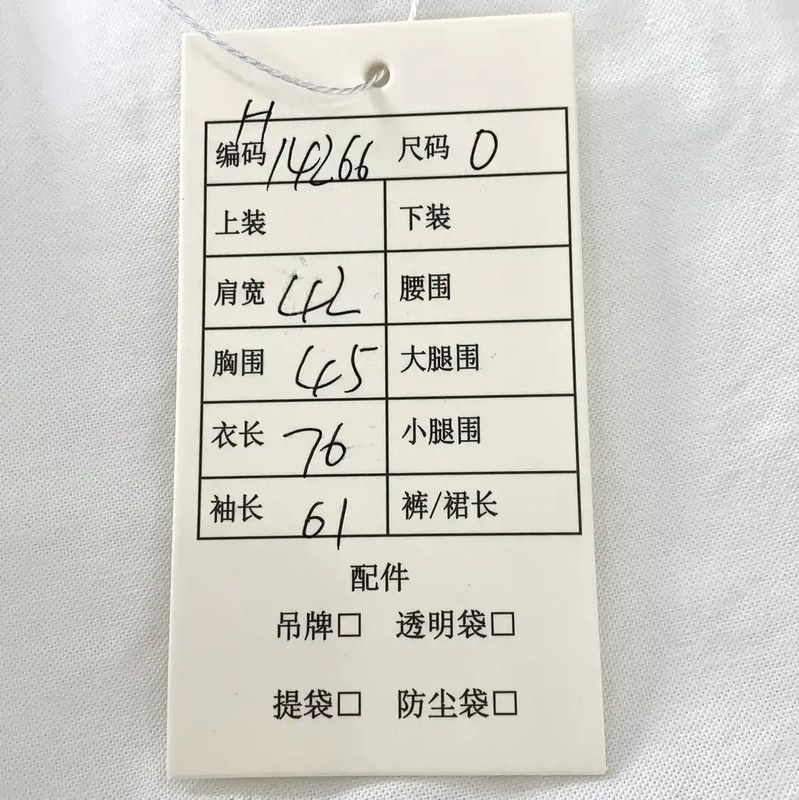 编码 H14266 尺码 0
上装 下装
肩宽 42 腰围
胸围 45 大腿围
衣长 76 小腿围
袖长 61 裤/裙长
配件
吊牌□ 透明袋□
提袋□ 防尘袋□